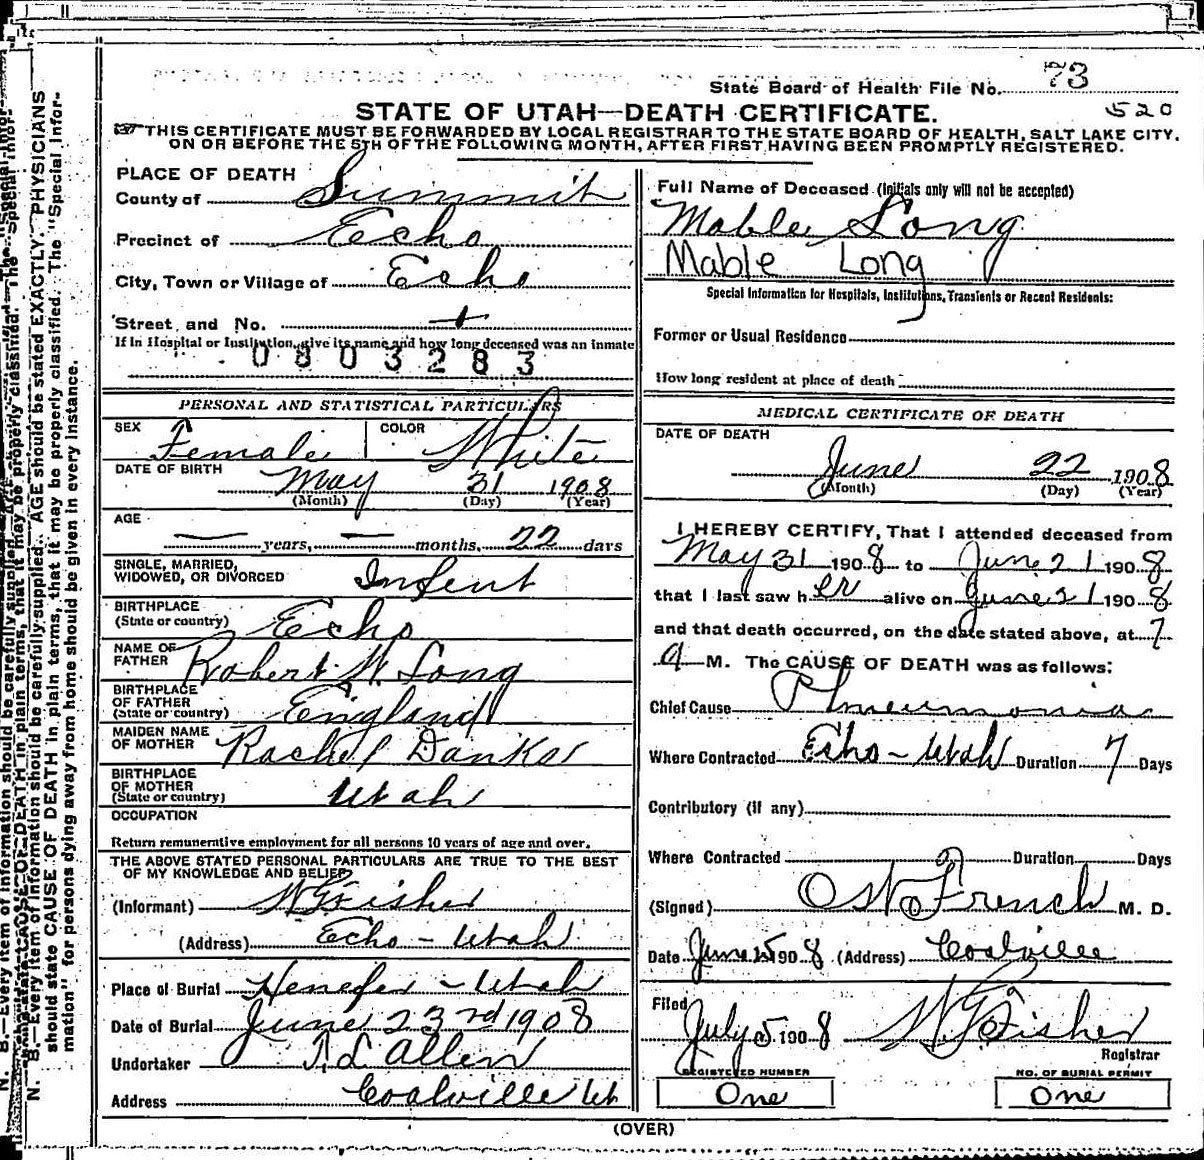 State Board of Health File No. 73
520
STATE OF UTAH—DEATH CERTIFICATE.
THIS CERTIFICATE MUST BE FORWARDED BY LOCAL REGISTRAR TO THE STATE BOARD OF HEALTH, SALT LAKE CITY,
ON OR BEFORE THE 5TH OF THE FOLLOWING MONTH, AFTER FIRST HAVING BEEN PROMPTLY REGISTERED.
PLACE OF DEATH
County of Summit
Precinct of Echo
City, Town or Village of Echo
Street, and No.
If in Hospital or Institution, give its name and how long deceased was an inmate
0803283
PERSONAL AND STATISTICAL PARTICULARS
SEX Female COLOR White
DATE OF BIRTH
May 31 1908
(Month) (Day) (Year)
AGE
— years, — months, 22 days
SINGLE, MARRIED,
WIDOWED, OR DIVORCED Infent
BIRTHPLACE
(State or country) Echo
NAME OF
FATHER Robert W. Long
BIRTHPLACE
OF FATHER
(State or country) England
MAIDEN NAME
OF MOTHER Rachel Danks
BIRTHPLACE
OF MOTHER
(State or country) Utah
OCCUPATION
Return remunerative employment for all persons 10 years of age and over.
THE ABOVE STATED PERSONAL PARTICULARS ARE TRUE TO THE BEST
OF MY KNOWLEDGE AND BELIEF
(Informant) W G Fisher
(Address) Echo - Utah
Place of Burial Henefer - Utah
Date of Burial June 23rd 1908
Undertaker T. L. Allen
Address Coalville Ut
Full Name of Deceased (Initials only will not be accepted)
Mable Long
Mable Long
Special Information for Hospitals, Institutions, Transients or Recent Residents:
Former or Usual Residence
How long resident at place of death
MEDICAL CERTIFICATE OF DEATH
DATE OF DEATH
June 22 1908
(Month) (Day) (Year)
I HEREBY CERTIFY, That I attended deceased from
May 31 1908 to June 21 1908
that I last saw her alive on June 21 1908
and that death occurred, on the date stated above, at 7
a M. The CAUSE OF DEATH was as follows:
Chief Cause Phneumonia
Where Contracted Echo - Utah Duration 7 Days
Contributory (if any)
Where Contracted Duration Days
(Signed) French M. D.
Date June 1908 (Address) Coalville
Filed
July 5 1908 W G Fisher
Registrar
REGISTERED NUMBER
One
NO. OF BURIAL PERMIT
One
(OVER)
N. B.—Every item of information should be carefully supplied. AGE should be stated EXACTLY. PHYSICIANS
should state CAUSE OF DEATH in plain terms, that it may be properly classified. The "Special Infor-
mation" for persons dying away from home should be given in every instance.